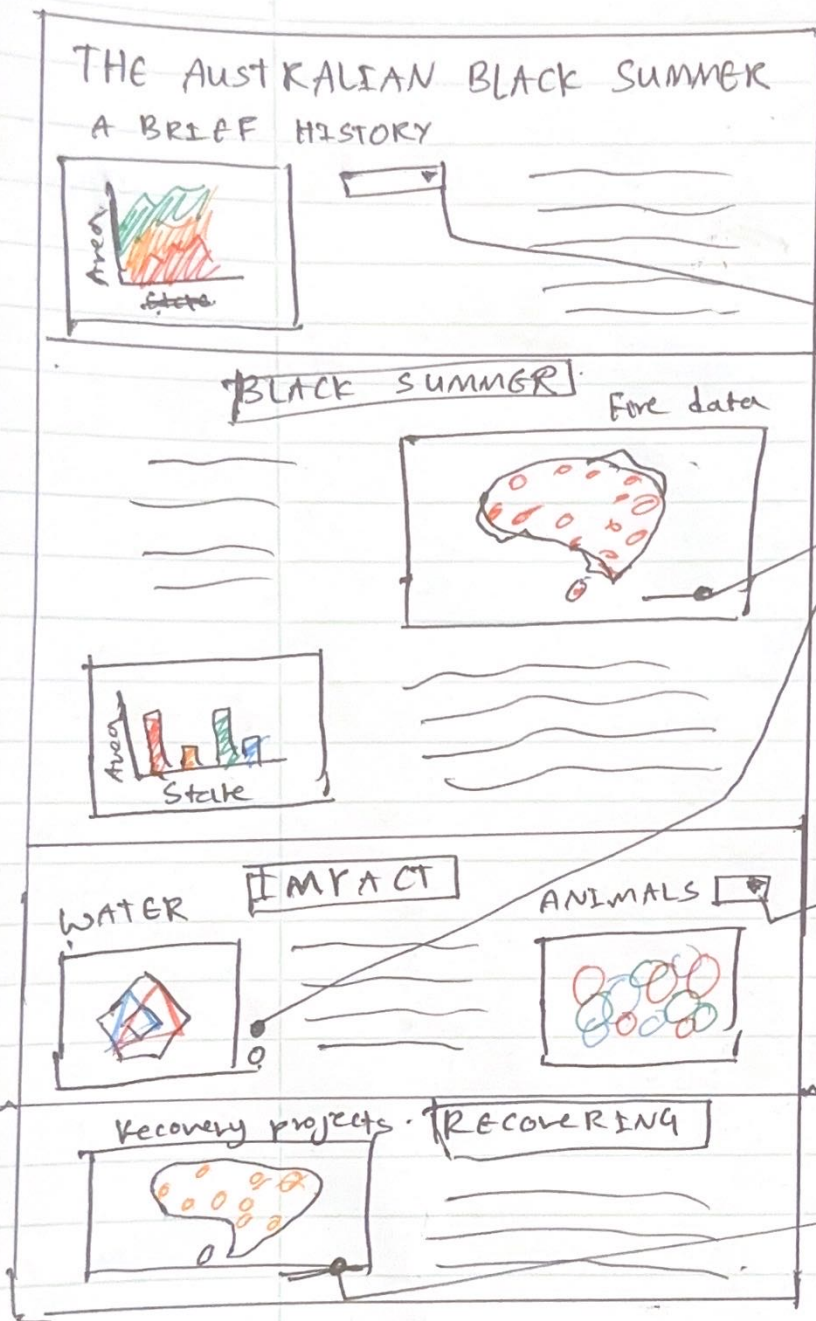 THE AUSTRALIAN BLACK SUMMER
A BRIEF HISTORY
Area
BLACK SUMMER
Fire data
Area
State
IMPACT
WATER
ANIMALS
Recovery projects.
RECOVERING